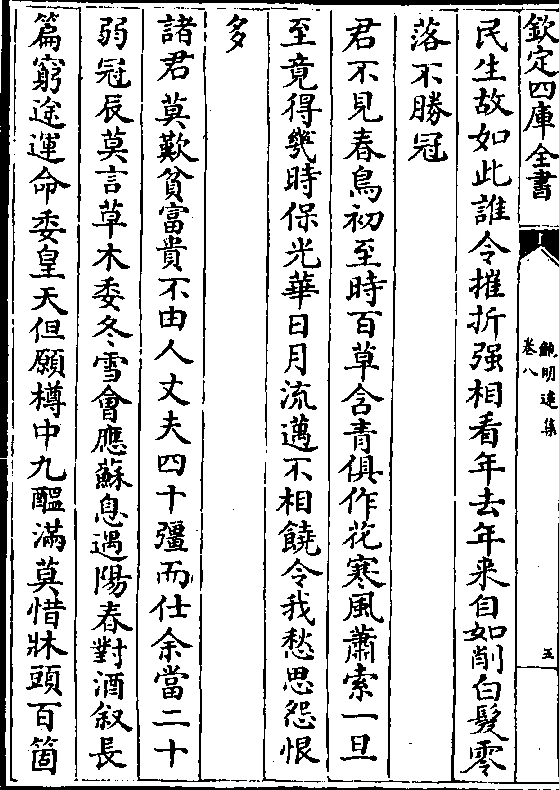 欽定四庫全書
鮑明遠集
卷八
五
民生故如此誰令摧折强相看年去年来自如削白髮零
落不勝冠
君不見春鳥初至時百草含青俱作花寒風蕭索一旦
至竟得幾時保光華日月流邁不相饒令我愁思怨恨
多
諸君莫歎貧富貴不由人丈夫四十彊而仕余當二十
弱冠辰莫言草木委冬雪會應蘇息遇陽春對酒叙長
篇窮途運命委皇天但願樽中九醖滿莫惜牀頭百箇